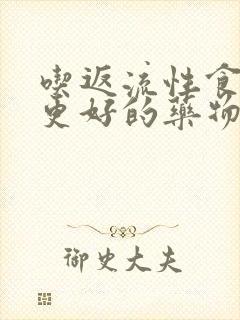 喫返流性食
更好的藥物
御史大夫